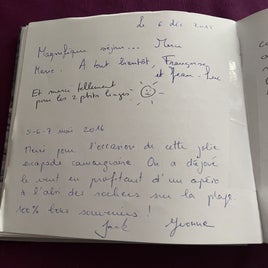 le 6 déc 2015
Magnifique séjour... Merci
Marie. A tout bientôt, Françoise
et Jean-Luc
Et merci tellement
pour les 2 ptits loups
5-6-7 mai 2016
Merci pour l'occasion de cette jolie
escapade camarguaise. On a déjoué
le vent en profitant d'un apéro
à l'abri des rochers sur la plage.
100% bons souvenirs !
Jack Yvonne